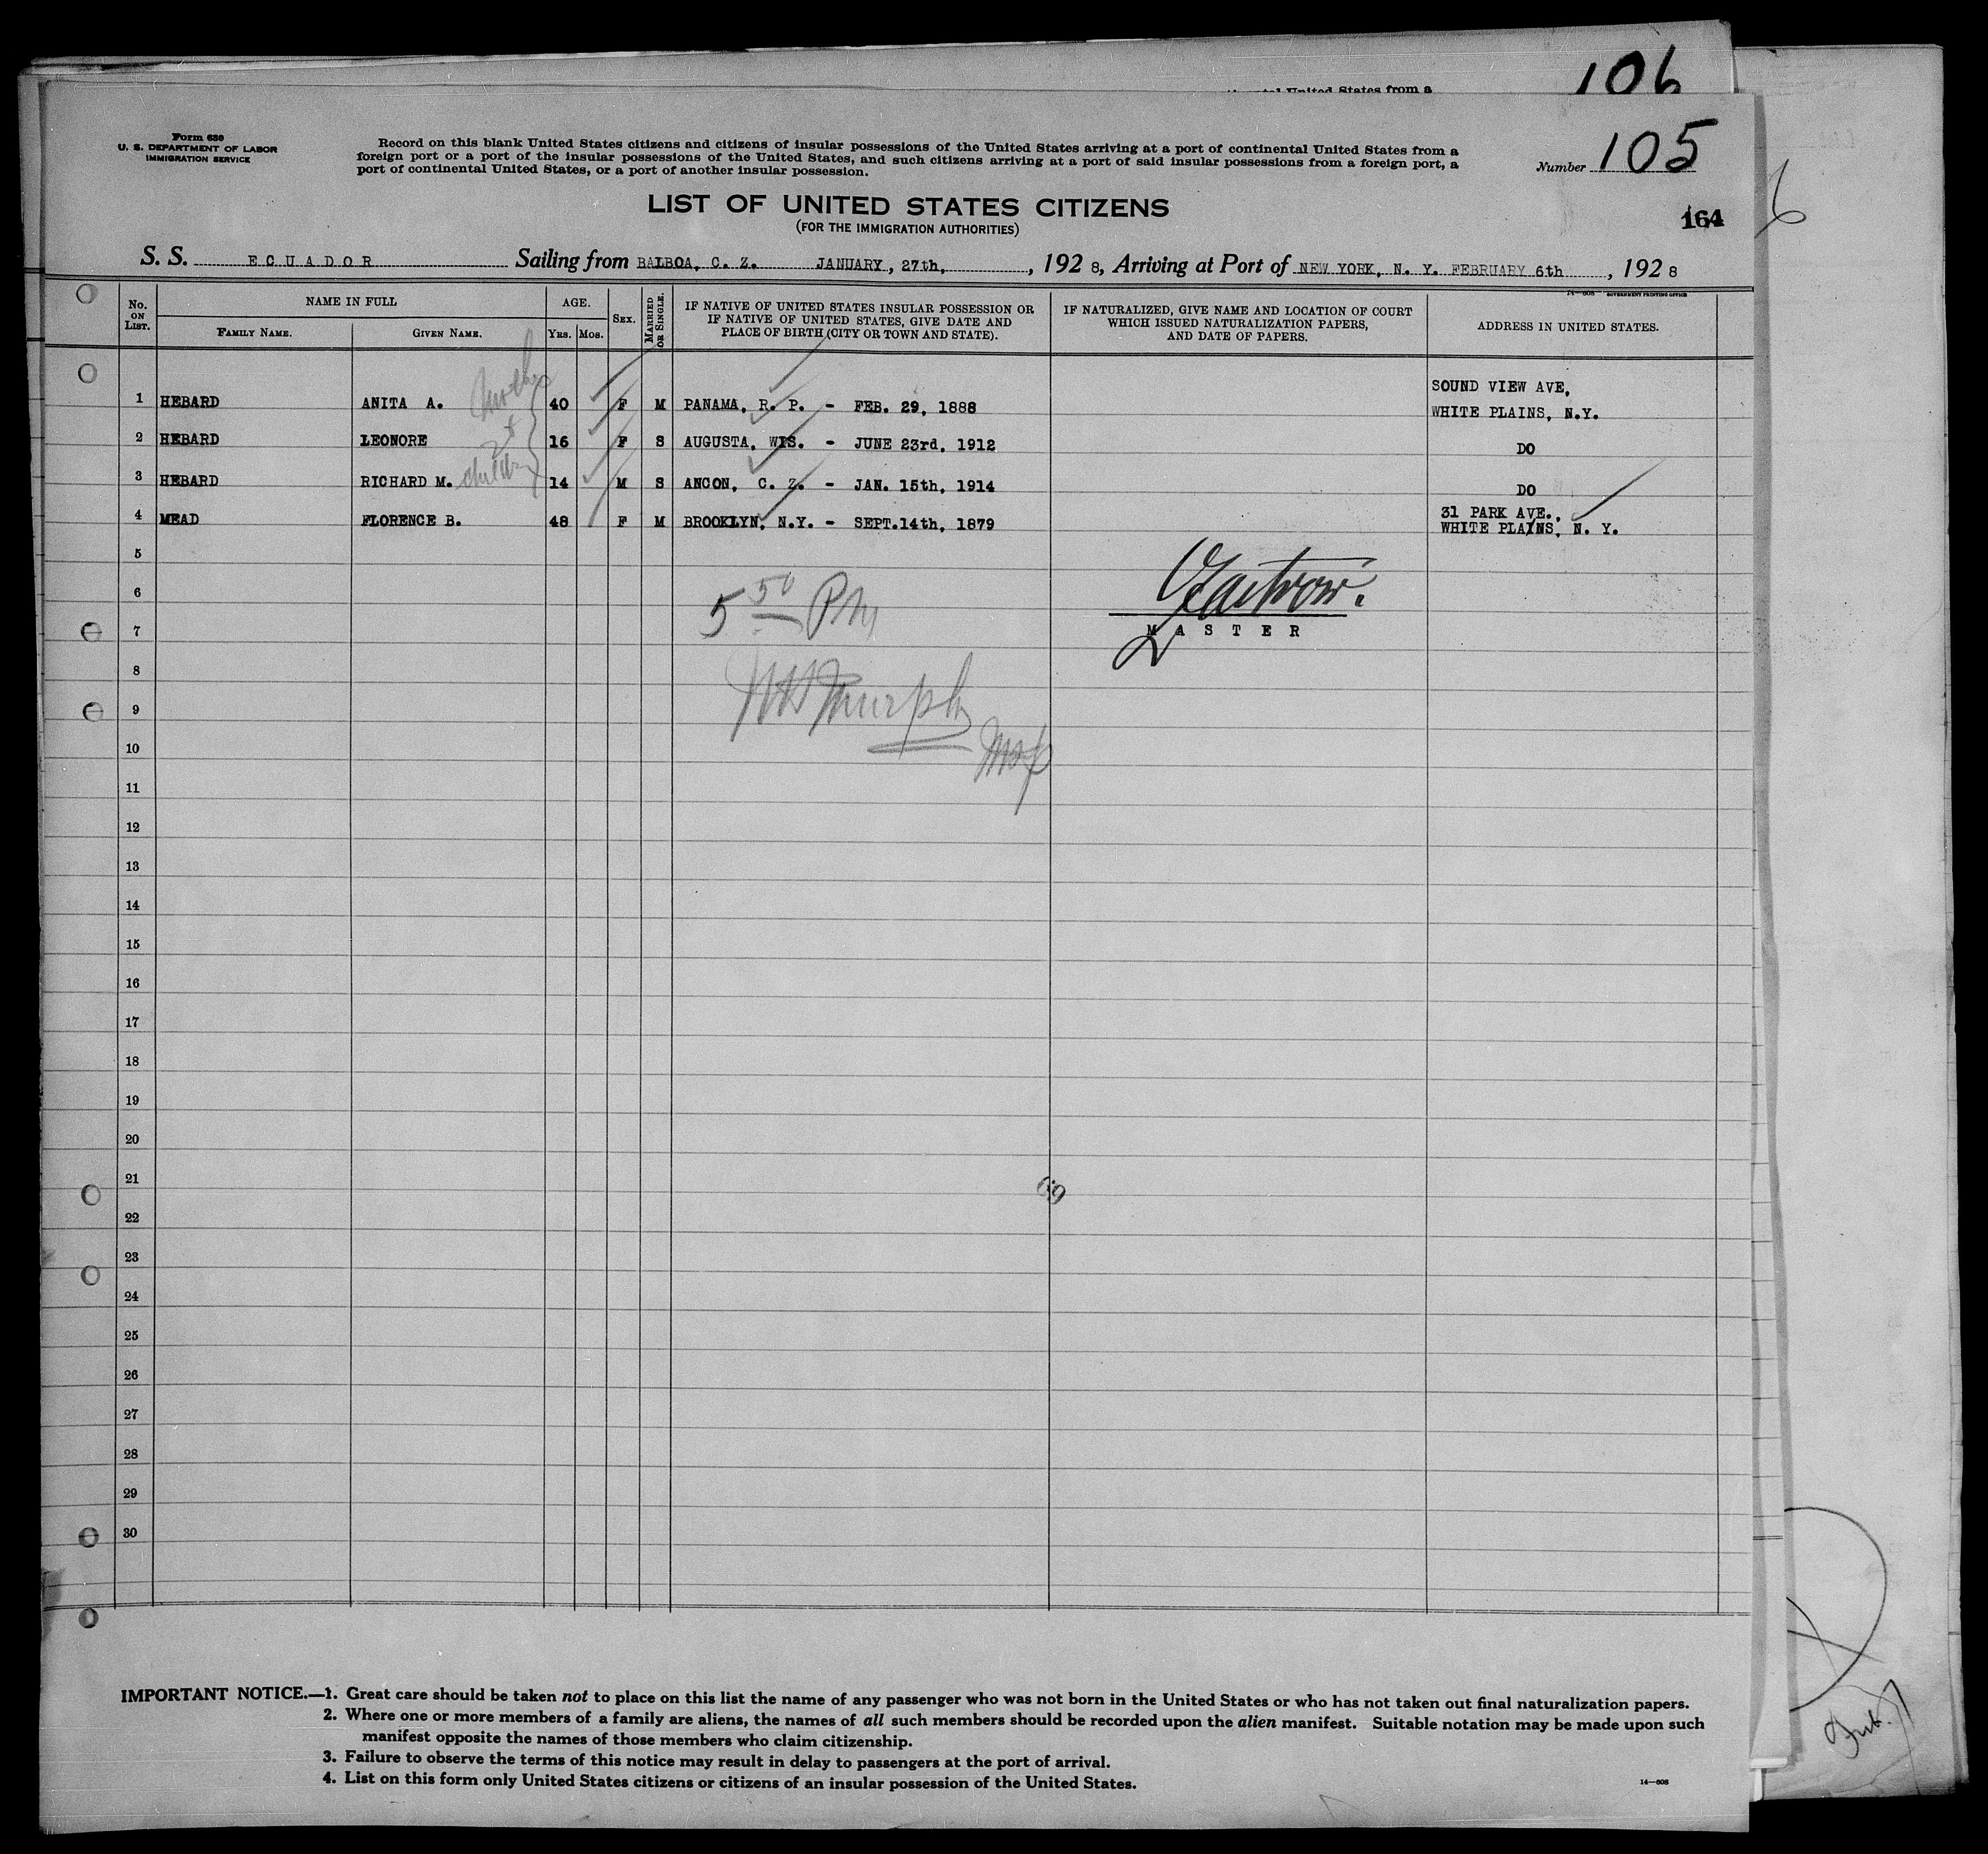 106
ntal United States from a
Form 630
U. S. DEPARTMENT OF LABOR
IMMIGRATION SERVICE
Record on this blank United States citizens and citizens of insular possessions of the United States arriving at a port of continental United States from a
foreign port or a port of the insular possessions of the United States, and such citizens arriving at a port of said insular possessions from a foreign port, a
port of continental United States, or a port of another insular possession.
Number 105
LIST OF UNITED STATES CITIZENS
(FOR THE IMMIGRATION AUTHORITIES)
164
S. S. ECUADOR Sailing from BALBOA, C. Z. JANUARY, 27th, , 1928, Arriving at Port of NEW YORK, N. Y. FEBRUARY 6th , 1928
14—608 GOVERNMENT PRINTING OFFICE
No. ON LIST.
NAME IN FULL
FAMILY NAME.
GIVEN NAME.
AGE.
Yrs. Mos.
SEX.
MARRIED OR SINGLE.
IF NATIVE OF UNITED STATES INSULAR POSSESSION OR
IF NATIVE OF UNITED STATES, GIVE DATE AND
PLACE OF BIRTH (CITY OR TOWN AND STATE).
IF NATURALIZED, GIVE NAME AND LOCATION OF COURT
WHICH ISSUED NATURALIZATION PAPERS,
AND DATE OF PAPERS.
ADDRESS IN UNITED STATES.
Mother
2
children
1 HEBARD ANITA A. 40 F M PANAMA, R. P. - FEB. 29, 1888 SOUND VIEW AVE,
WHITE PLAINS, N.Y.
2 HEBARD LEONORE 16 F S AUGUSTA, WIS. - JUNE 23rd, 1912 DO
3 HEBARD RICHARD M. 14 M S ANCON, C. Z. - JAN. 15th, 1914 DO
4 MEAD FLORENCE B. 48 F M BROOKLYN, N.Y. - SEPT.14th, 1879 31 PARK AVE.,
WHITE PLAINS, N. Y.
5
6
7
5 50 PM
MASTER
8
Murphy
9
10
11
12
13
14
15
16
17
18
19
20
21
69
22
23
24
25
26
27
28
29
30
IMPORTANT NOTICE.—1. Great care should be taken not to place on this list the name of any passenger who was not born in the United States or who has not taken out final naturalization papers.
2. Where one or more members of a family are aliens, the names of all such members should be recorded upon the alien manifest. Suitable notation may be made upon such
manifest opposite the names of those members who claim citizenship.
3. Failure to observe the terms of this notice may result in delay to passengers at the port of arrival.
4. List on this form only United States citizens or citizens of an insular possession of the United States.
14—608